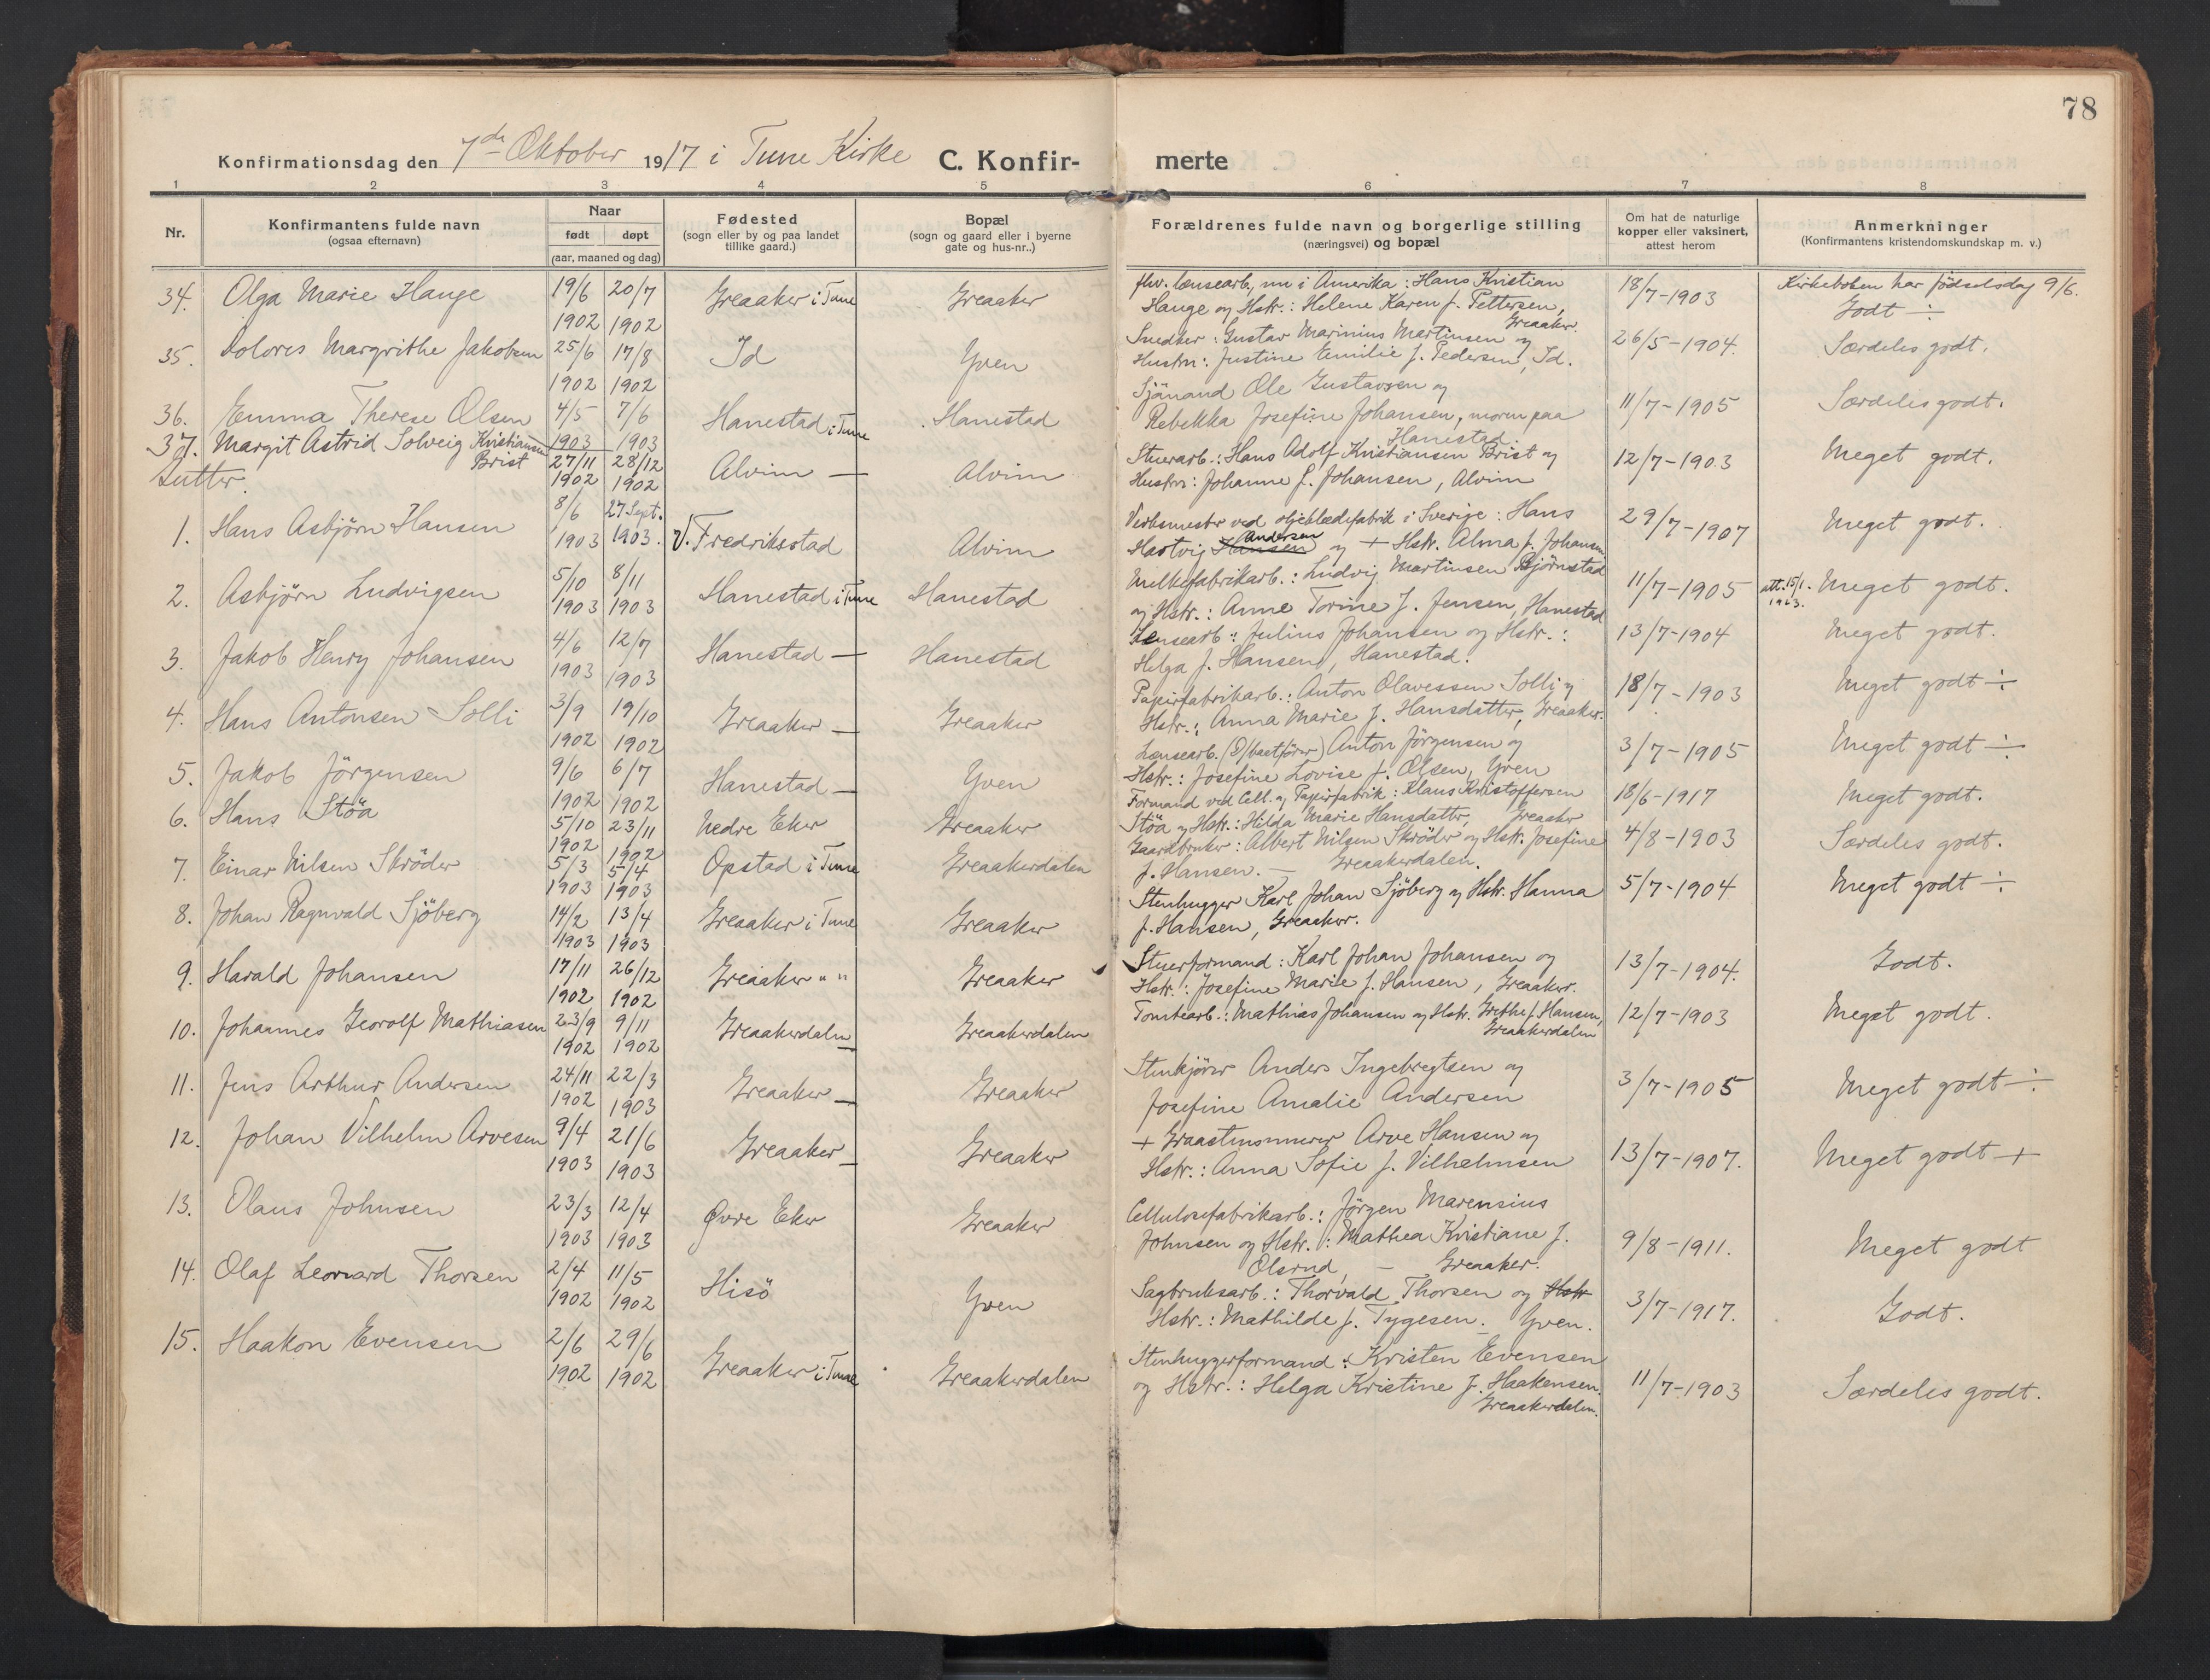 78
Konfirmationsdag den 7de Oktober 1917 i Tune Kirke C. Konfir- merte
1 2 3 4 5 6 7 8
Nr.
Konfirmantens fulde navn
(ogsaa efternavn)
Naar
født døpt
(aar, maaned og dag)
Fødested
(sogn eller by og paa landet
tillike gaard.)
Bopæl
(sogn og gaard eller i byerne
gate og hus-nr..)
Forældrenes fulde navn og borgerlige stilling
(næringsvei) og bopæl
Om hat de naturlige
kopper eller vaksinert,
attest herom
Anmerkninger
(Konfirmantens kristendomskundskap m. v.)
34. Olga Marie Hauge 19/6 1902 20/7 1902 Greaaker i Tune Greaaker
fhv. lænsearb., nu i Amerika: Hans Kristian
Hauge og Hstr.: Helene Karen f. Pettersen,
Greaaker.
18/7-1903 Kirkeboken har fødselsdag 9/6.
Godt ÷
35. Dolores Margrithe Jakobsen 25/6 1902 17/8 1902 Id Yven
Snedker: Gustav Marinius Martinsen og
Hustru: Justine Emilie f. Pedersen, Id.
26/5-1904. Særdeles godt.
36. Emma Therese Olsen 4/5 1903 7/6 1903 Hanestad i Tune Hanestad
Sjömand Ole Gustavsen og
Rebekka Josefine Johansen, moren paa
Hanestad
11/7-1905 Særdeles godt.
37. Margit Astrid Solveig Kristiansen
Brist 27/11 1902 28/12 1902 Alvim — Alvim
Stuerarb.: Hans Adolf Kristiansen Brist og
Hustru: Johanne f. Johansen, Alvim
12/7-1903 Meget godt.
Gutter.
1. Hans Asbjörn Hansen 8/6 1903 27 Sept. 1903. V. Fredriksstad Alvim
Verksmester ved oljeklædefabrik i Sverige: Hans
Hartvig Hansen Andersen og + Hstr. Alma f. Johansen.
29/7-1907 Meget godt.
2. Asbjörn Ludvigsen 5/10 1903 8/11 1903 Hanestad i Tune Hanestad
Melkefabrikarb.: Ludvig Martinsen Bjørnstad
og Hstr.: Anne Torine f. Jensen, Hanestad
11/7-1905 att. 15/1. Meget godt.
3. Jakob Henry Johansen 4/6 1903 12/7 1903 Hanestad — Hanestad
Lensearb.: Julius Johansen og Hstr.:
Helga f. Hansen, Hanestad.
13/7-1904 Meget godt.
4. Hans Antonsen Solli 3/9 1902 19/10 1902 Greaaker — Greaaker
Papirfabrikarb.: Anton Olavessen Solli og
Hstr.: Anna Marie f. Hansdatter, Greaaker.
18/7-1903 Meget godt ÷
5. Jakob Jörgensen 9/6 1902 6/7 1902 Hanestad — Yven
Lænsearb. Anton Jörgensen og
Hstr.: Josefine Lovise f. Olsen, Yven
3/7-1905 Meget godt ÷
6. Hans Stöa 5/10 1902 23/11 1902 Nedre Eker Greaaker
Formand ved Cell. og Papirfabrik: Klaus Kristoffersen
Stöa og Hstr.: Hilda Marie Hansdatter, Greaaker
18/6-1917 Meget godt.
7. Einar Nilsen Skröder 5/3 1903 5/4 1903 Opstad i Tune Greaakerdalen
Gaardbruker: Albert Nilsen Skröder og Hstr. Josefine
f. Hansen. — Greaakerdalen.
4/8-1903 Særdeles godt.
8. Johan Ragnvald Sjöberg 14/2 1903 13/4 1903 Greaaker i Tune Greaaker
Stenhugger Karl Johan Sjöberg og Hstr. Hanna
f. Hansen, Greaaker.
5/7-1904 Meget godt ÷
9. Harald Johansen 17/11 1902 26/12 1902 Greaaker " " Greaaker
Stuerformand: Karl Johan Johansen og
Hstr.: Josefine Marie f. Hansen, Greaaker.
13/7-1904. Godt.
10. Johannes Georolf Mathiasen 23/9 1902 9/11 1902 Greaakerdalen — Greaakerdalen
Tomtearb.: Mathias Johansen og Hstr. Grethe f. Hansen,
Greaakerdalen
12/7-1903 Meget godt.
11. Jens Arthur Andersen 24/11 1902 22/3 1903 Greaaker — Greaaker
Stenkjörer Anders Ingebregtsen og
Josefine Amalie Andersen
3/7-1905 Meget godt ÷
12. Johan Vilhelm Arvesen 9/4 1903 21/6 1903 Greaaker — Greaaker
+ Graastensmurer Arve Hansen og
Hstr.: Anna Sofie f. Vilhelmsen
13/7-1907. Meget godt +
13. Olaus Johnsen 23/3 1903 12/4 1903 Øvre Eker Greaaker
Cellulosefabrikarb.: Jörgen Marensius
Johnsen og Hstr.: Mathea Kristiane f.
Olsrud, — Greaaker.
9/8-1911. Meget godt
14. Olaf Leonard Thorsen 2/4 1902 11/5 1902 Hisö Yven
Sagbruksarb.: Thorvald Thorsen og Hstr
Hstr.: Mathilde f. Tygesen. Yven.
3/7-1917. Godt.
15. Haakon Evensen 2/6 1902 29/6 1902 Greaaker i Tune Greaakerdalen
Stenhuggerformand: Kristen Evensen
og Hstr.: Helga Kristine f. Haakensen.
Greaakerdalen.
11/7-1903 Særdeles godt.